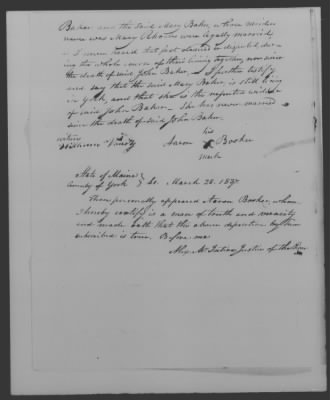 Baker and the said Mary Baker whose maiden
name was Mary Rhodes were legally married,
I never heard that fact denied or disputed, du-
ring the whole course of their living together, nor since
the death of said John Baker, I further testify
and say that the said Mary Baker is still living
in York, and that she is the reputed widow
of said John Baker. She has never married
since the death of said John Baker.
his
witness
Aaron X Booker
mark
State of Maine }
County of York } Ss. March 28. 1837
Then personally appeared Aaron Booker, whom
I hereby certify is a man of truth and veracity
and made oath that the above deposition by him
subscribed is true. Before me
Alex McIntire Justice of the Peace